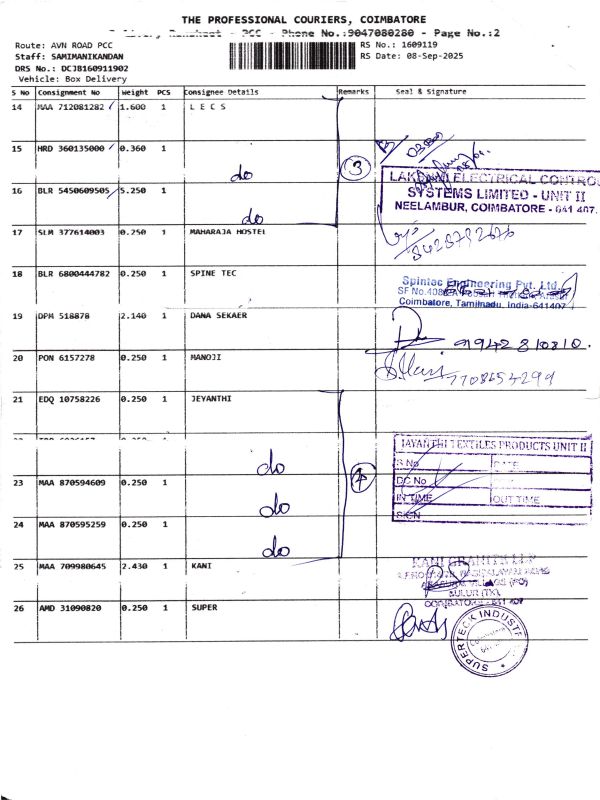 THE PROFESSIONAL COURIERS, COIMBATORE
- PCC - Phone No.:9047080280 - Page No.:2
Route: AVN ROAD PCC
RS No.: 1609119
Staff: SAMIMANIKANDAN
RS Date: 08-Sep-2025
DRS No.: DCJB160911902
Vehicle: Box Delivery
S No Consignment No Weight PCS Consignee Details Remarks Seal & Signature
14 MAA 712081282 1.600 1 L E C S
15 HRD 360135000 0.360 1
do
3
LAKSHMI ELECTRICAL CONTROL
SYSTEMS LIMITED - UNIT II
NEELAMBUR, COIMBATORE - 641 407.
16 BLR 5450609505 5.250 1
do
17 SLM 377614003 0.250 1 MAHARAJA HOSTEL
18 BLR 6800444782 0.250 1 SPINE TEC
Spintec Engineering Pvt. Ltd.
SF No.408
Coimbatore, Tamilnadu, India-641407
19 DPM 518878 2.140 1 DANA SEKAER
9942810810.
20 PON 6157278 0.250 1 MANOJI
7708654299
21 EDQ 10758226 0.250 1 JEYANTHI
JAYANTHI TEXTILES PRODUCTS UNIT II
S.No DATE
DC No
IN TIME OUT TIME
SIGN
do
4
23 MAA 870594609 0.250 1
do
24 MAA 870595259 0.250 1
do
25 MAA 709980645 2.430 1 KANI
KANI GRANITH LLP
SULUR (TK),
COIMBATORE - 641 407
26 AMD 31090820 0.250 1 SUPER
SUPERTECK INDUSTR